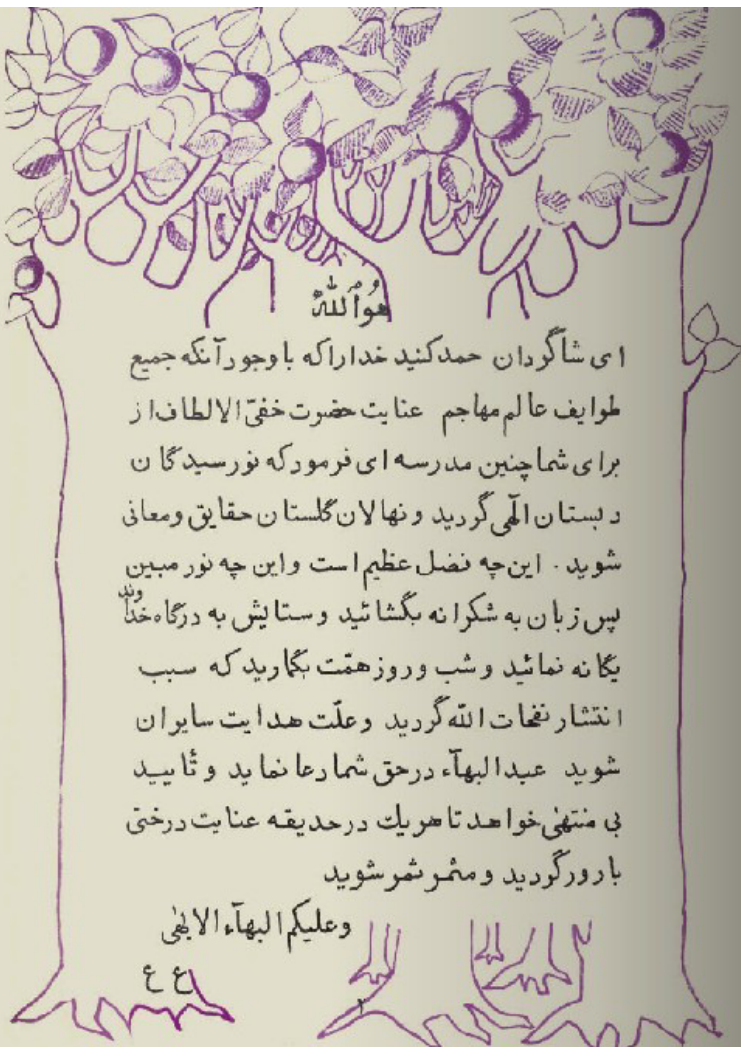 هُوَٱللّٰهُ
ای شاگردان حمد کنید خدارا که با وجود آنکه جمیع
طوایف عالم مهاجم عنایت حضرت خفیّ الالطاف از
برای شما چنین مدرسه ای فرمود که نورسیدگان
دبستان الٓهی گردید و نهالان گلستان حقایق و معانی
شوید . این چه فضل عظیم است و این چه نور مبین
پس زبان به شکرانه بگشائید و ستایش به درگاه خداوند
یگانه نمائید و شب و روز همّت بگمارید که سبب
انتشار نفحات اللّه گردید و علّت هدایت سایران
شوید عبدالبهآء در حق شما دعا نماید و تأیید
بی منتهٰی خواهد تا هریك در حدیقه عنایت درختی
بارور گردید و مثمر ثمر شوید
و علیکم البهآء الابهٰی
ع ع
۲